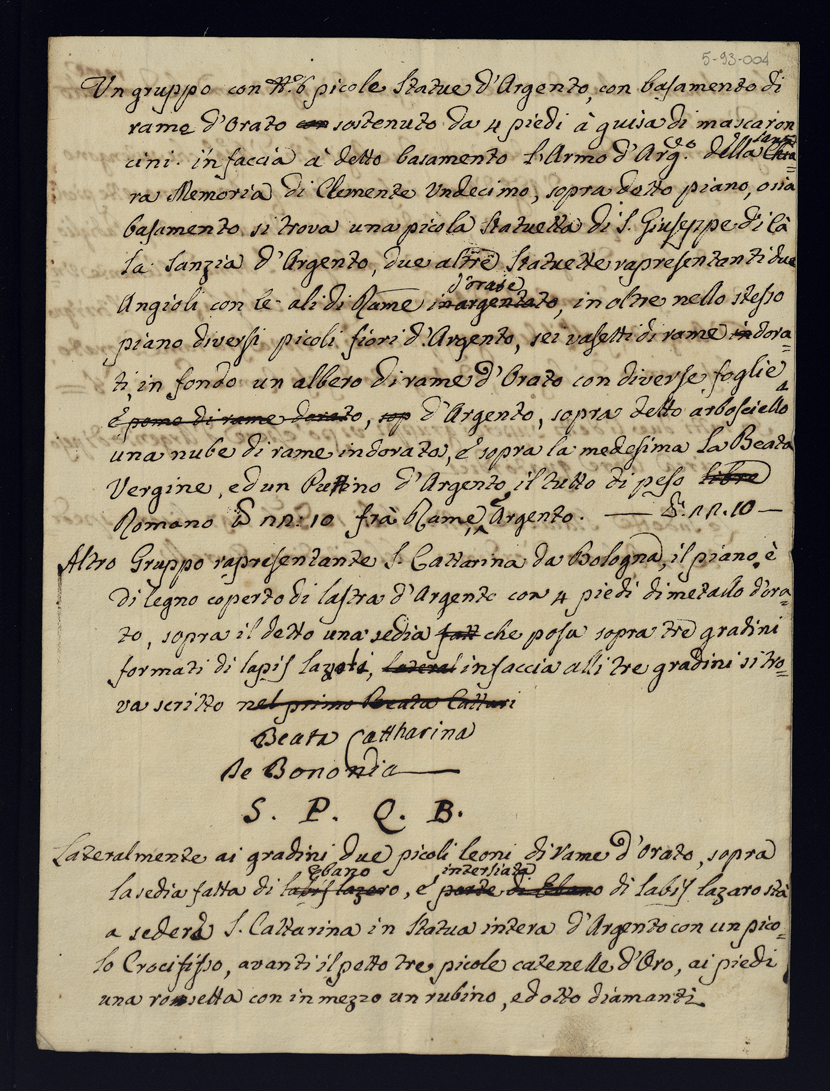 5-93-004
Un gruppo con N.º 6 picole Statue d'Argento, con basamento di
rame d'Orato con sostenuto da 4 piedi à guisa di mascaron
cini. in faccia à detto basamento L'Armo d'Arg.º della Santa Chia=
ra Memoria di Clemente Undecimo, sopra detto piano, o sia
basamento si trova una picola Statuetta di S. Giuseppe di là
la Sanzia d'Argento, due altre Statuette rapresentanti due
Angioli con le ali di Rame inargentato d'orate, in oltre nello stesso
piano diversi picoli fiori d'Argento, sei vasetti di rame indora=
ti, in fondo un albero di rame d'Orato con diverse foglie
e pome di rame dorato, sop d'Argento, sopra detto arbosciello
una nube di rame indorato, e sopra la medesima la Beata
Vergine, ed un Puttino d'Argento, il tutto di peso libre
Romano nn: 10 frà Rame, e Argento. — nn. 10 —
Altro Gruppo rapresentante S. Cattarina da Bologna, il piano è
di legno coperto di lastra d'Argento con 4 piedi di metallo d'ora=
to, sopra il detto una sedia fatt che posa sopra tre gradini
formati di lapis lazoli, lateral in faccia alli tre gradini si tro=
va scritto nel primo Beata Cattari
Beata Cattharina
de Bononia
S. P. Q. B.
Lateralmente ai gradini due picoli leoni di rame d'Orato, sopra
la sedia fatta di labis lazaro ebano, e parte di Ebano intersiata di labis lazaro stà
a sedere S. Cattarina in Statua intera d'Argento con un pico=
lo Crocifisso, avanti il petto tre picole catenelle d'Oro, ai piedi
una rossetta con in mezzo un rubino, ed otto diamanti